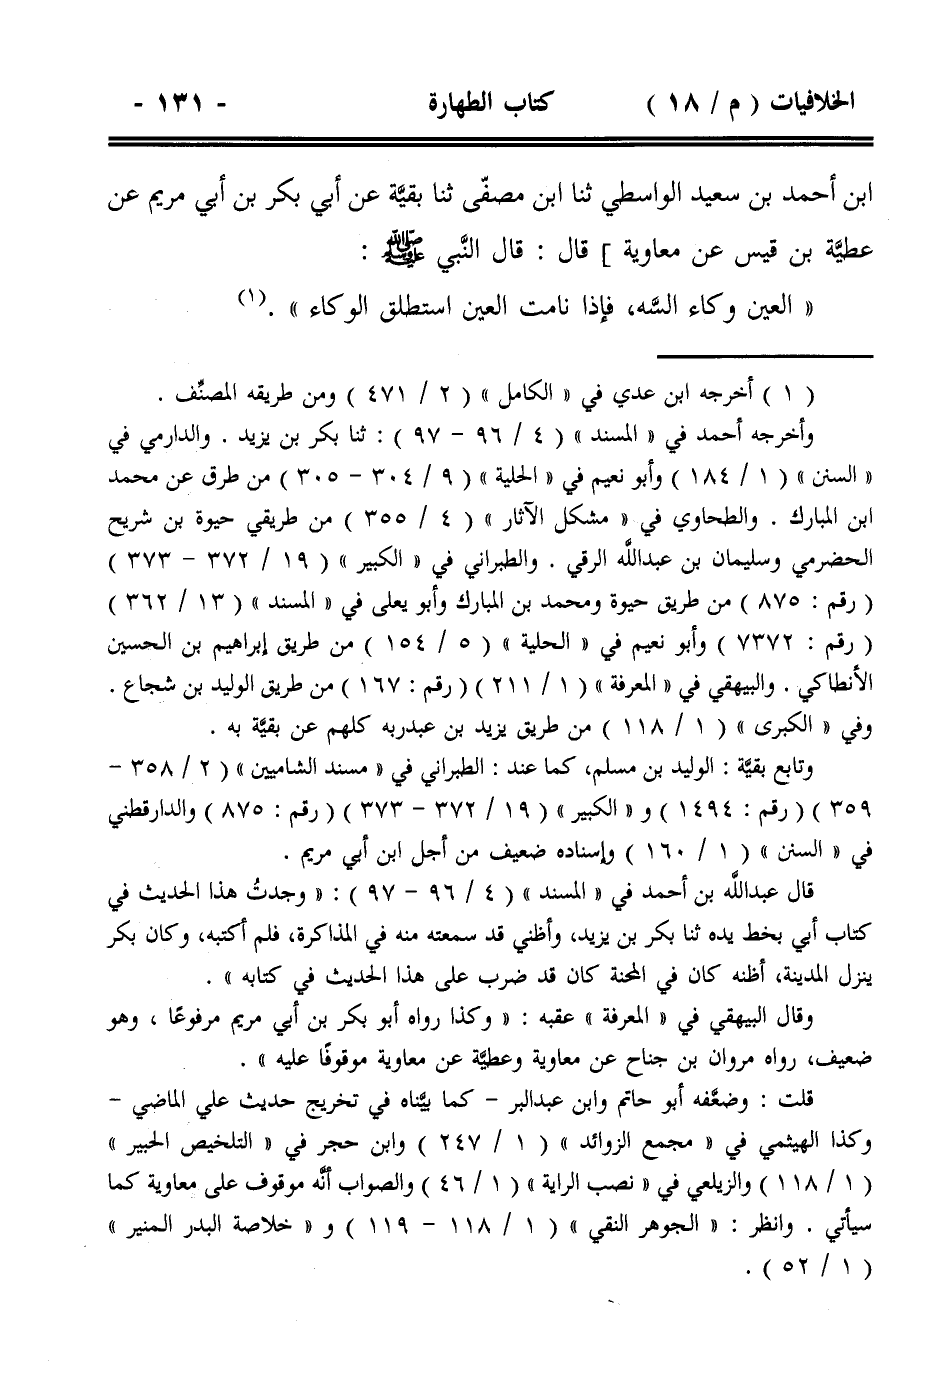 الخلافيات ( م / ١٨ ) كتاب الطهارة - ١٣١ -
ابن أحمد بن سعيد الواسطي ثنا ابن مصفّى ثنا بقيَّة عن أبي بكر بن أبي مريم عن
عطيَّة بن قيس عن معاوية ] قال : قال النَّبي ﷺ :
« العين وكاء السَّه، فإذا نامت العين استطلق الوكاء » .(١)
( ١ ) أخرجه ابن عدي في « الكامل » ( ٢ / ٤٧١ ) ومن طريقه المصنِّف .
وأخرجه أحمد في « المسند » ( ٤ / ٩٦ - ٩٧ ) : ثنا بكر بن يزيد . والدارمي في
« السنن » ( ١ / ١٨٤ ) وأبو نعيم في « الحلية » ( ٩ / ٣٠٤ - ٣٠٥ ) من طرق عن محمد
ابن المبارك . والطحاوي في « مشكل الآثار » ( ٤ / ٣٥٥ ) من طريقي حيوة بن شريح
الحضرمي وسليمان بن عبدالله الرقي . والطبراني في « الكبير » ( ١٩ / ٣٧٢ - ٣٧٣ )
( رقم : ٨٧٥ ) من طريق حيوة ومحمد بن المبارك وأبو يعلى في « المسند » ( ١٣ / ٣٦٢ )
( رقم : ٧٣٧٢ ) وأبو نعيم في « الحلية » ( ٥ / ١٥٤ ) من طريق إبراهيم بن الحسين
الأنطاكي . والبيهقي في « المعرفة » ( ١ / ٢١١ ) ( رقم : ١٦٧ ) من طريق الوليد بن شجاع .
وفي « الكبرى » ( ١ / ١١٨ ) من طريق يزيد بن عبدربه كلهم عن بقيَّة به .
وتابع بقيَّة : الوليد بن مسلم، كما عند : الطبراني في « مسند الشاميين » ( ٢ / ٣٥٨ -
٣٥٩ ) ( رقم : ١٤٩٤ ) و « الكبير » ( ١٩ / ٣٧٢ - ٣٧٣ ) ( رقم : ٨٧٥ ) والدارقطني
في « السنن » ( ١ / ١٦٠ ) وإسناده ضعيف من أجل ابن أبي مريم .
قال عبدالله بن أحمد في « المسند » ( ٤ / ٩٦ - ٩٧ ) : « وجدتُ هذا الحديث في
كتاب أبي بخط يده ثنا بكر بن يزيد، وأظني قد سمعته منه في المذاكرة، فلم أكتبه، وكان بكر
ينزل المدينة، أظنه كان في المحنة كان قد ضرب على هذا الحديث في كتابه » .
وقال البيهقي في « المعرفة » عقبه : « وكذا رواه أبو بكر بن أبي مريم مرفوعًا ، وهو
ضعيف، رواه مروان بن جناح عن معاوية وعطيَّة عن معاوية موقوفًا عليه » .
قلت : وضعَّفه أبو حاتم وابن عبدالبر - كما بيَّناه في تخريج حديث علي الماضي -
وكذا الهيثمي في « مجمع الزوائد » ( ١ / ٢٤٧ ) وابن حجر في « التلخيص الحبير »
( ١ / ١١٨ ) والزيلعي في « نصب الراية » ( ١ / ٤٦ ) والصواب أنَّه موقوف على معاوية كما
سيأتي . وانظر : « الجوهر النقي » ( ١ / ١١٨ - ١١٩ ) و « خلاصة البدر المنير »
( ١ / ٥٢ ) .